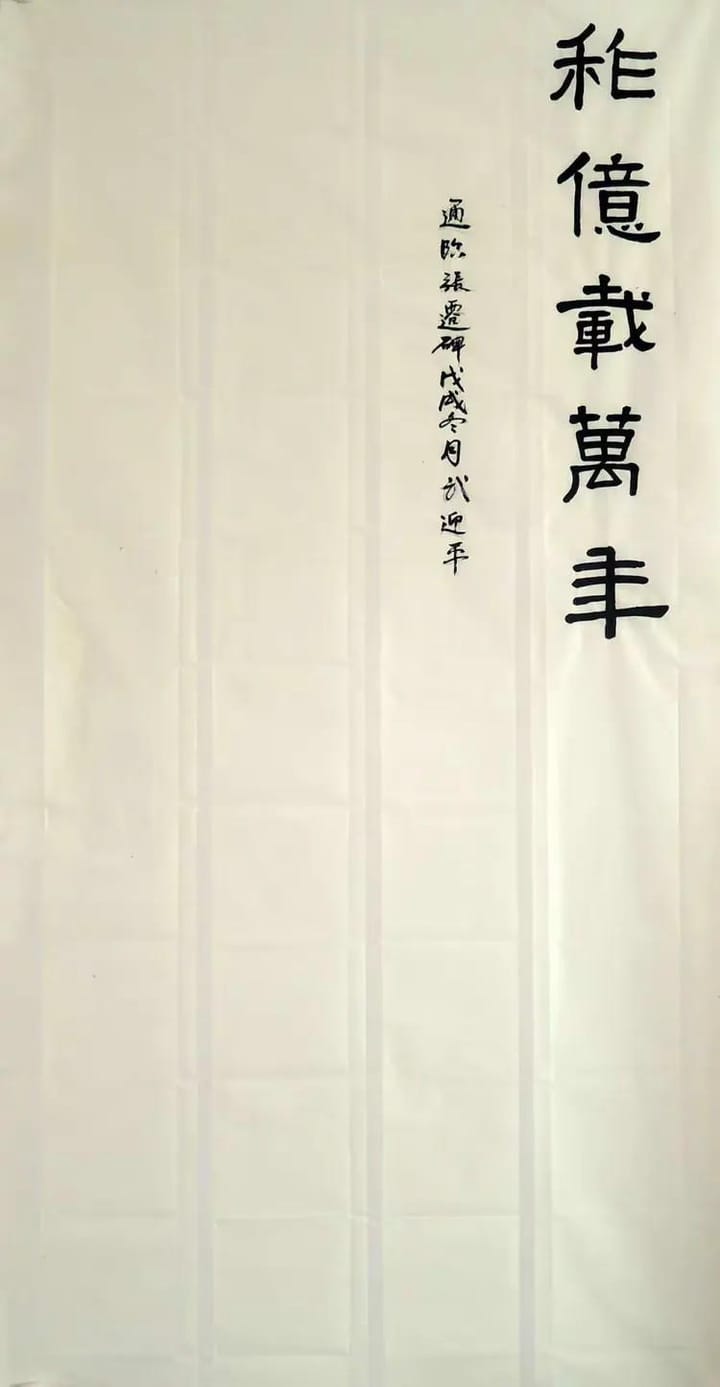 秨億載萬年
通臨張遷碑戊戌冬月武迎平